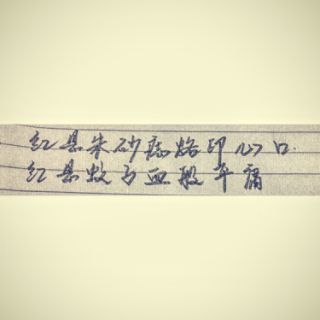 红是朱砂痣烙印心口
红是蚊子血般平庸